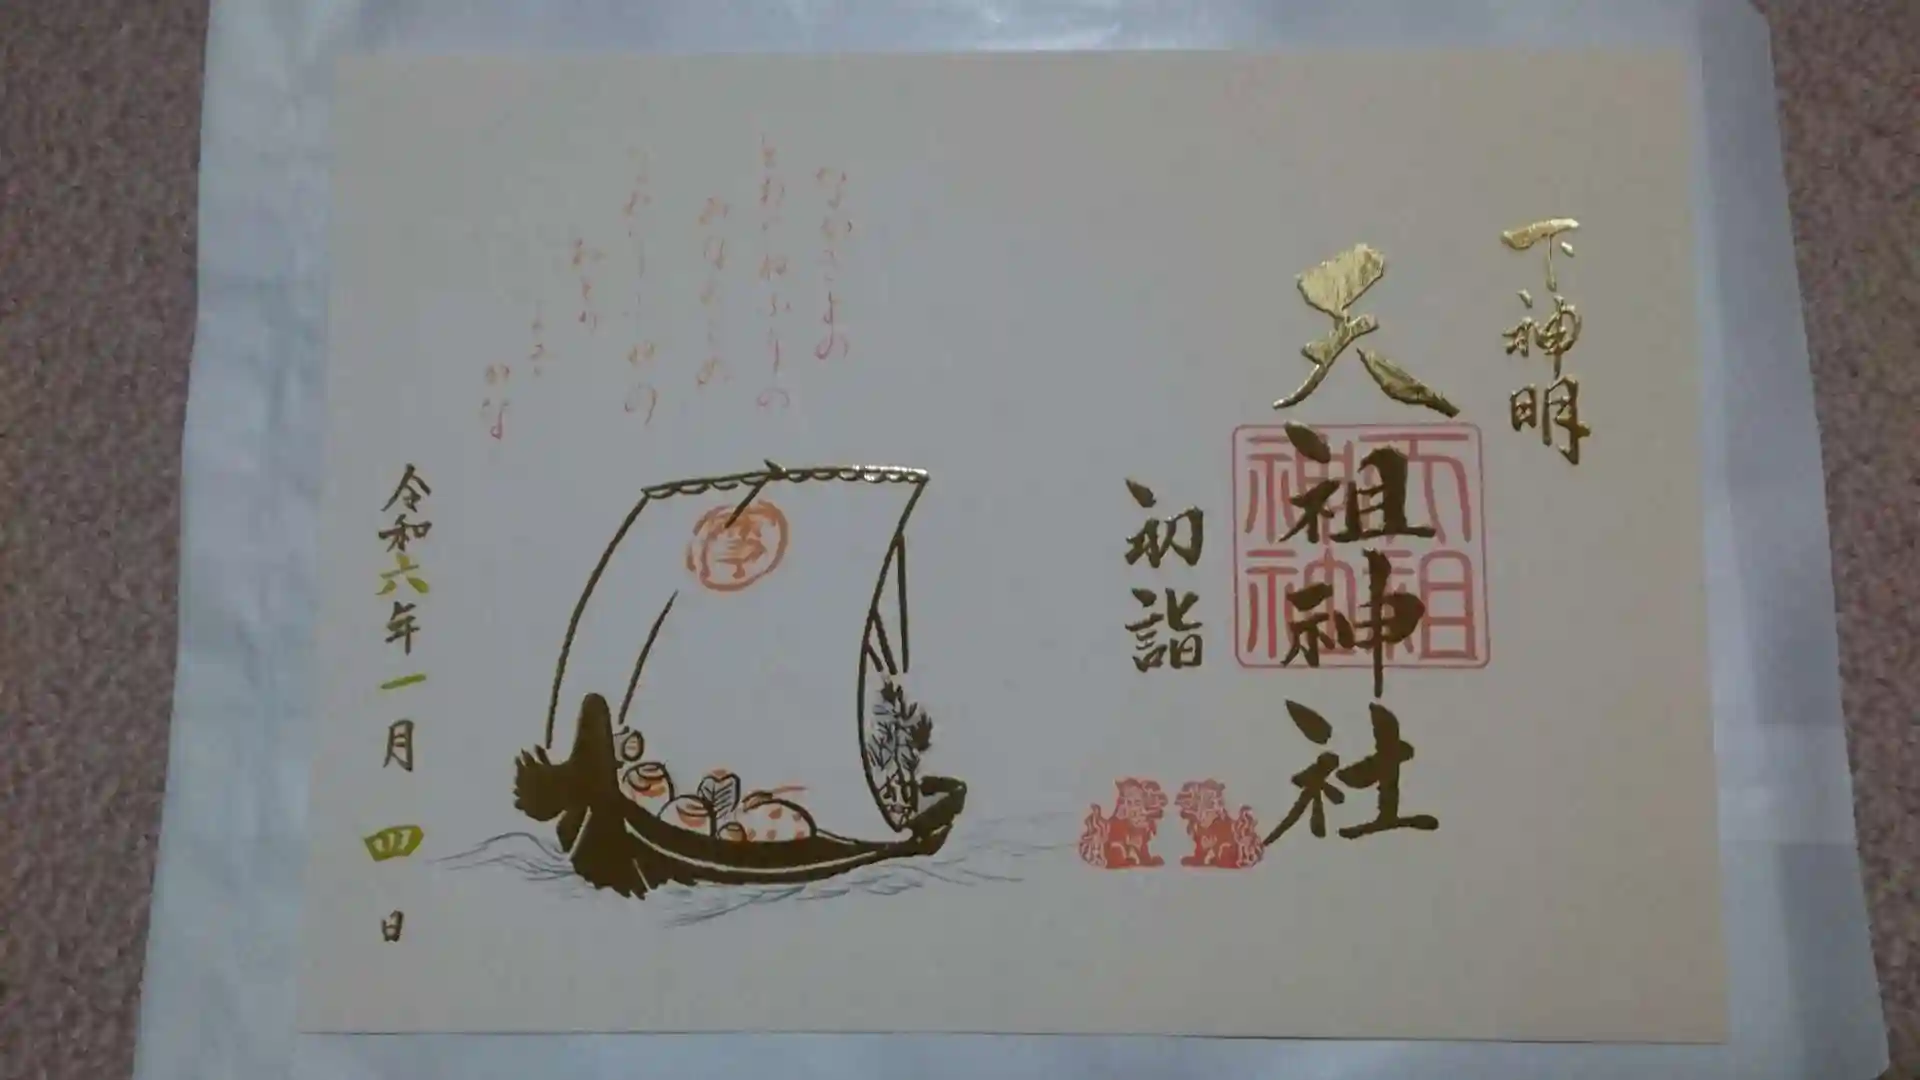 下神明
天祖神社
天祖神社
初詣
なかきよの
とおのねふりの
みなめさめ
なみのりふねの
おとの
よき
かな
令和六年一月四日